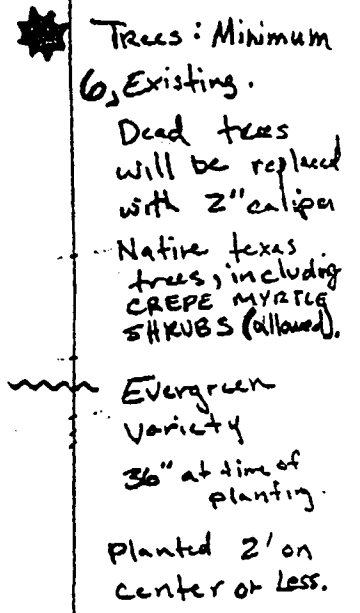 Trees: Minimum
6, Existing.
Dead trees
will be replaced
with 2" caliper
Native texas
trees, including
CREPE MYRTLE
SHRUBS (allowed).
Evergreen
Variety
36" at time of
planting.
planted 2' on
center or Less.